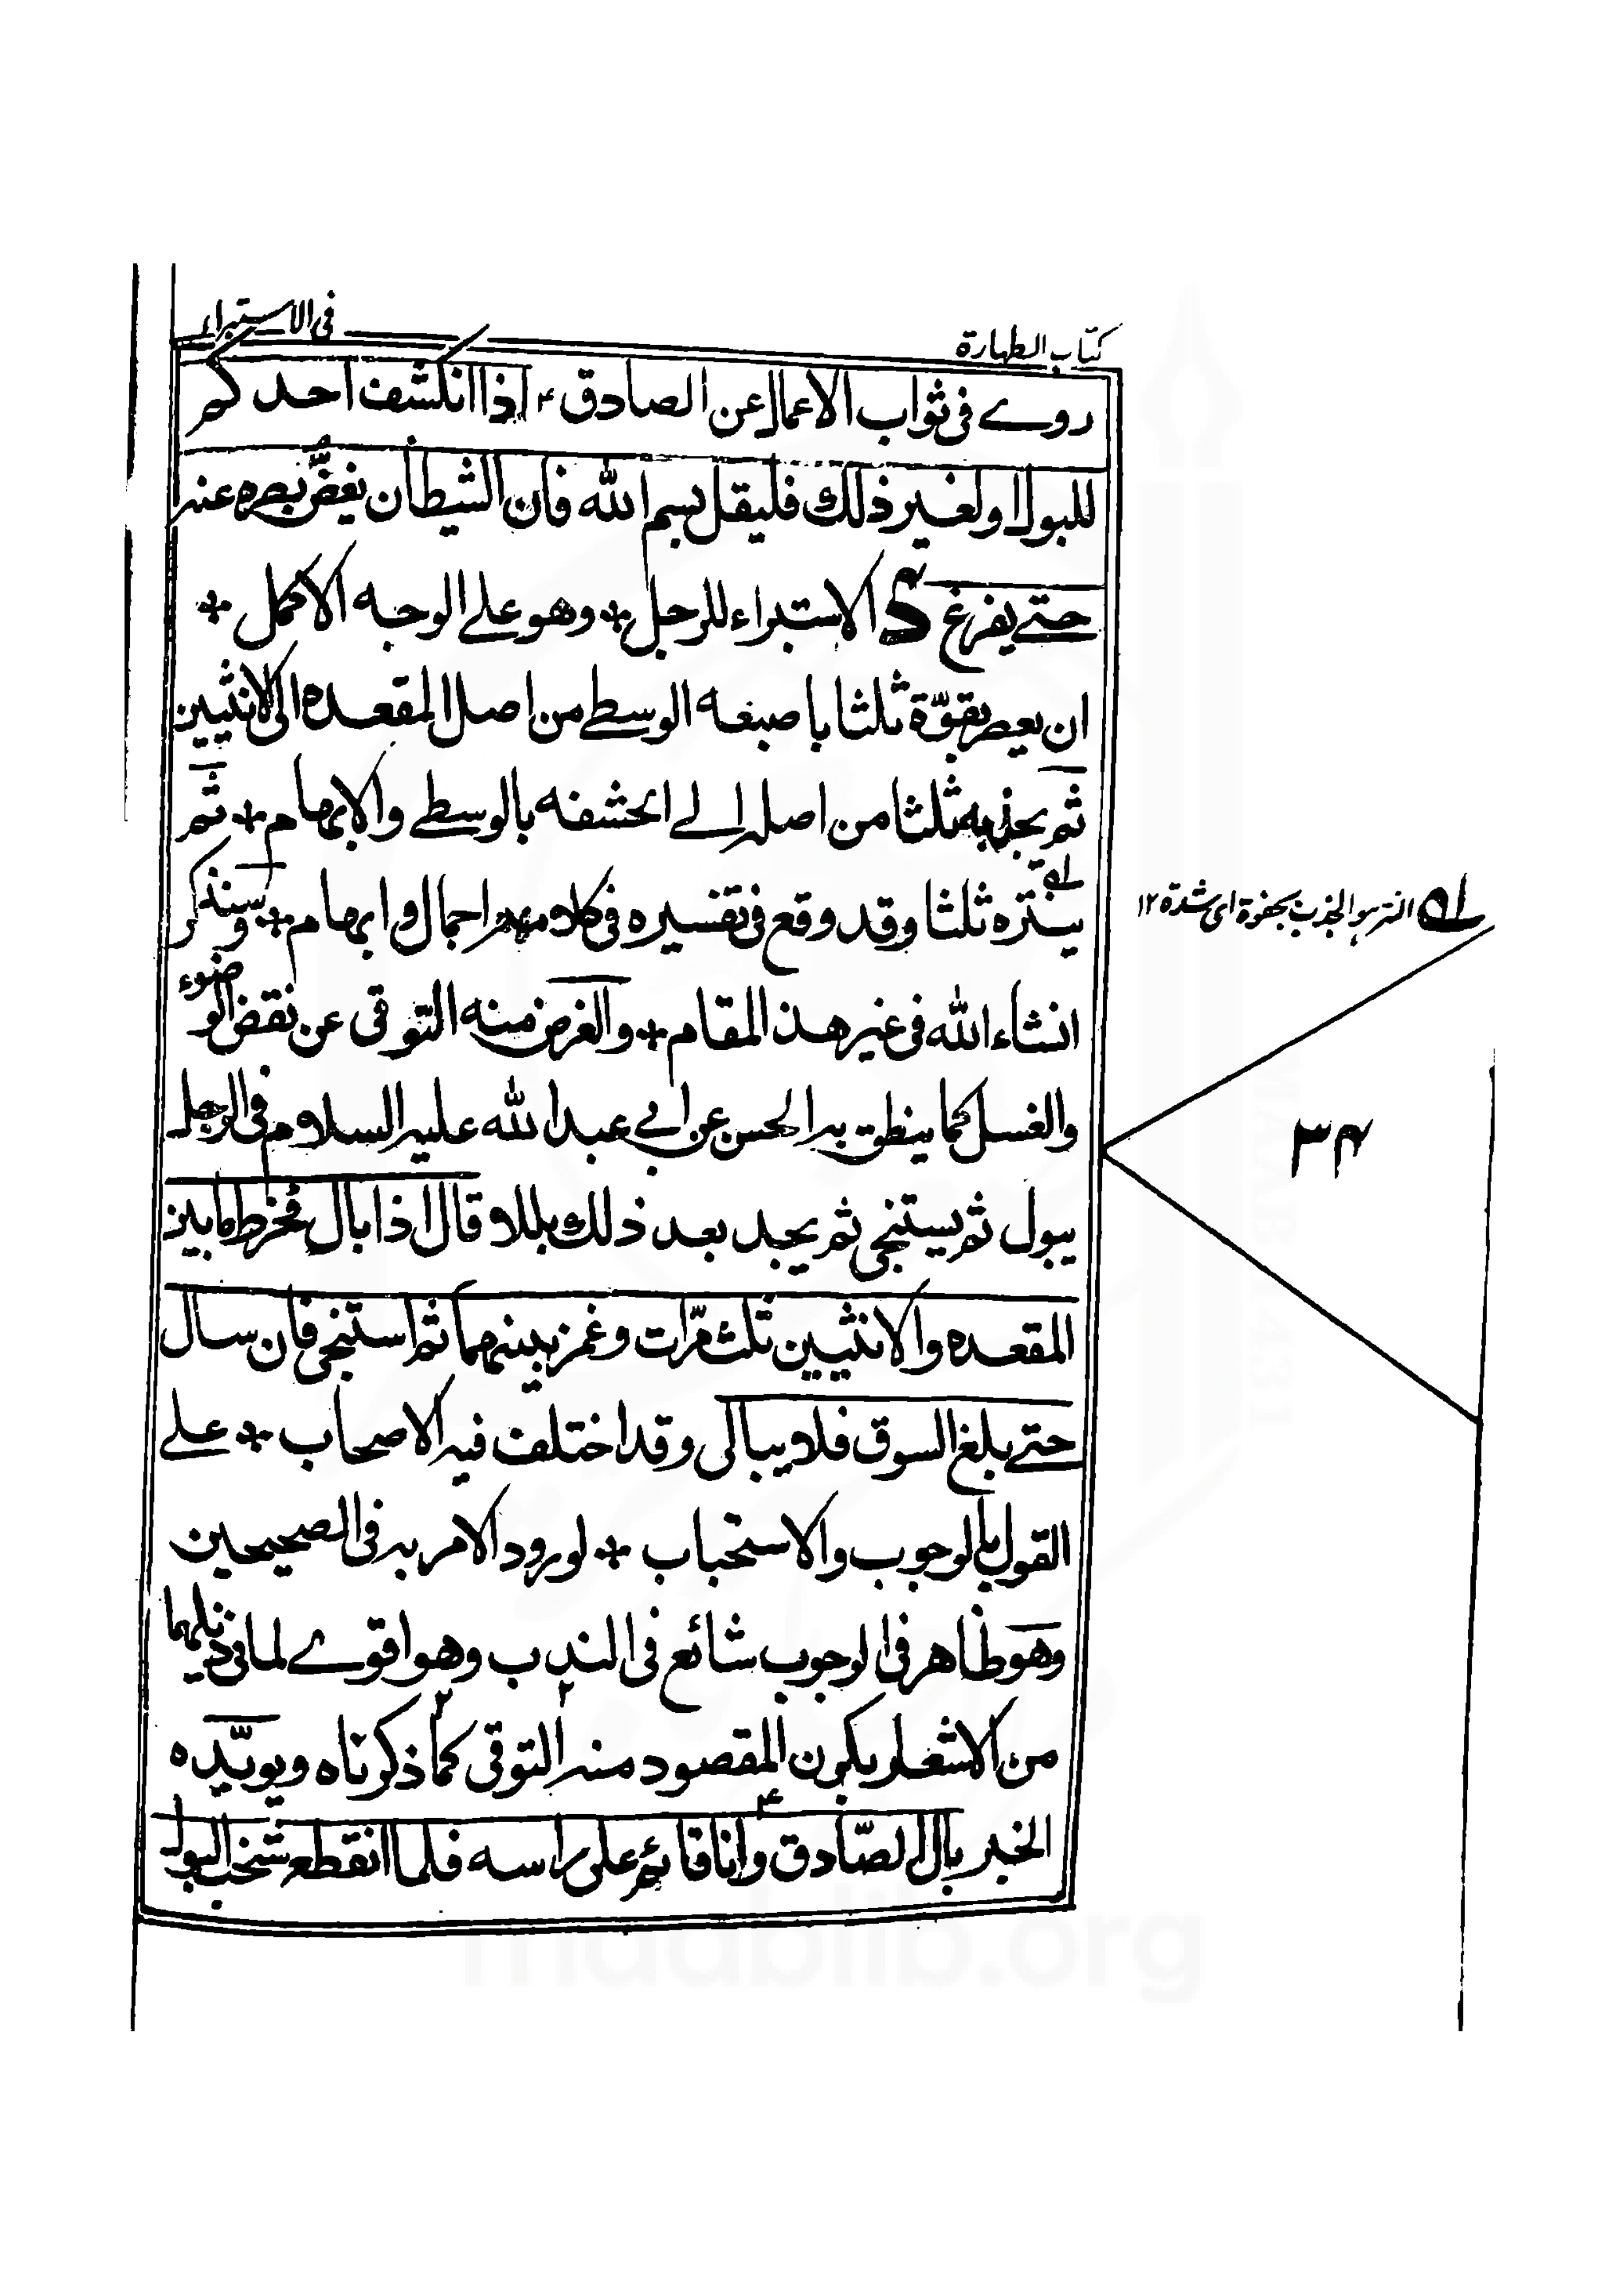 كتاب الطهارة
فى الاستبراء
روے فى ثواب الاعمال عن الصادق ع اذا انكشف احدكم
للبول او لغير ذلك فليقل بسم الله فان الشيطان يغضّ بصره عنه
حتے يفرغ م الاستبراء للرجل * وهو علے الوجه الاكمل *
ان يعصر بقوّة ثلثا باصبغه الوسطے من اصل المقعده الى الانثيين
ثم يجذبه ثلثا من اصله الے الحشفه بالوسطے والابهام * ثم
ينتره ثلثا وقد وقع فى تفسيره فى كلامهم اجمال وابهام * وسنذكر
انشاء الله فى غير هذ المقام * والغرض منه التوقى عن نقض الوضوء
والغسل كما ينطق به الحسن عن ابي عبد الله عليه السلام فى الرجل
يبول ثم يستنجى ثم يجد بعد ذلك بللا قال اذا بال فخرط مابين
المقعده والانثيين ثلث مرّات وغمز بينهما ثم استنجى فان سال
حتے بلغ السوق فلا يبالى وقد اختلف فيه الاصحاب * علے
القول بالوجوب والاستحباب * لورود الامر به فى الصحيحين
وهو ظاهر فى الوجوب شائع فى الندب وهو اقوے لما فى ذيلهما
من الاشعار بكون المقصود منه التوقى كما ذكرناه ويويّده
الخبر بال الصّادق ع وانا قائم على راسه فلما انقطع شخب البول
له النتر هو الجذب بجفوة اى شدة ١٢
٣٤
maablib.org